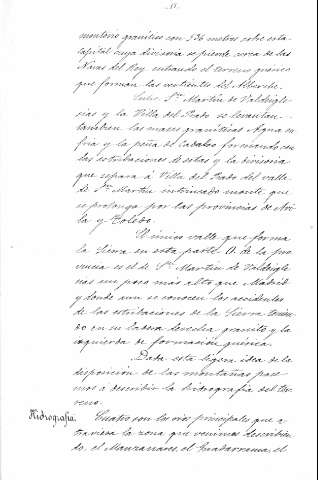 monteno granítico con 936 metros sobre esta
capital cuya divisoria se pierde cerca de las
Navas del Rey entrando el terreno gneico
que forman las vertientes del Alberche.
Entre Sn. Martin de Valdeigle-
sias y la Villa del Prado se levantan
tambien las masas graníticas Agua en
fria y la peña de Cadalso formando con
las estribaciones de estas y la divisoria
que separa á Villa del Prado del valle
de Sn. Martin intrincado monte que
se prolonga por las provincias de Avi-
la y Toledo.
El único valle que forma
la Sierra en esta parte O. de la pro
vincia es el de Sn. Martin de Valdeigle
sias un poco más alto que Madrid
y donde aun se conocen los accidentes
de las estribaciones de la Sierra tenien
do en su ladera derecha granito y la
izquierda de formacion gneica.
Dada esta ligera idea de la
disposicion de las montañas pase
mos a describir la hidrografia del ter
reno.
Hidrografia. Cuatro son los rios principales que a-
traviesa la zona que venimos describien
do, el Manzanares, el Guadarrama, el